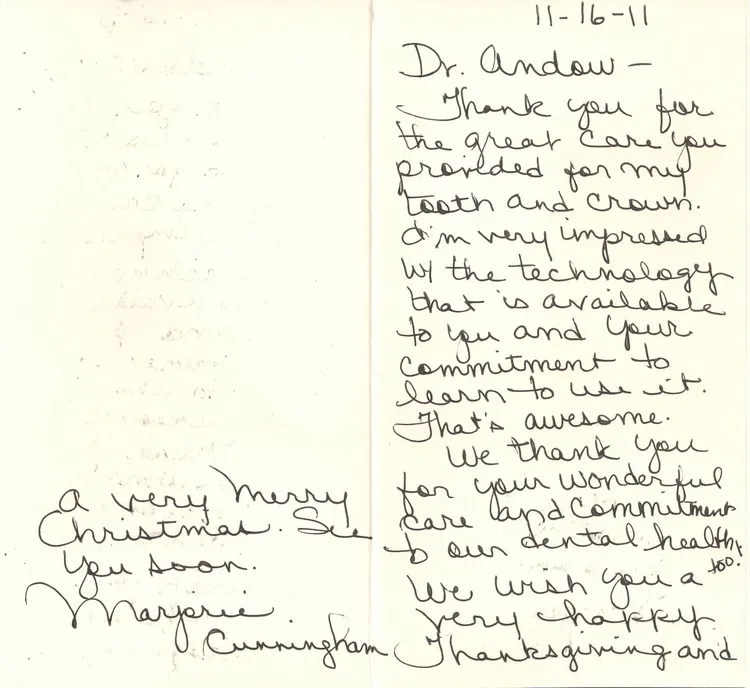 11-16-11
Dr. Andow -
Thank you for
the great care you
provided for my
tooth and crown.
I'm very impressed
w/ the technology
that is available
to you and your
commitment to
learn to use it.
That's awesome.
We thank you
for your wonderful
care and commitment
to our dental health,
too.
We wish you a
very happy
Thanksgiving and
a very merry
Christmas. See
you soon.
Marjorie
Cunningham